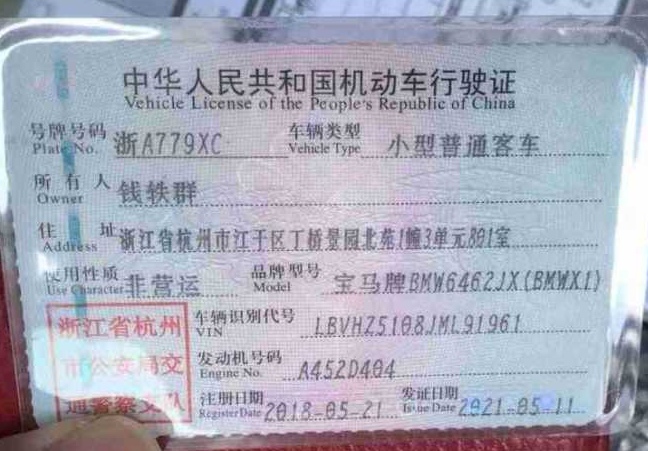 中华人民共和国机动车行驶证
Vehicle License of the People's Republic of China
号牌号码 Plate No. 浙A779XC 车辆类型 Vehicle Type 小型普通客车
所有人 Owner 钱轶群
住址 Address 浙江省杭州市江干区丁桥景园北苑1幢3单元801室
使用性质 Use Character 非营运 品牌型号 Model 宝马牌BMW6462JX(BMWX1)
浙江省杭州
市公安局交
通警察支队
车辆识别代号 VIN LBVHZ5108JML91961
发动机号码 Engine No. A452D404
注册日期 Register Date 2018-05-21 发证日期 Issue Date 2021-05-11